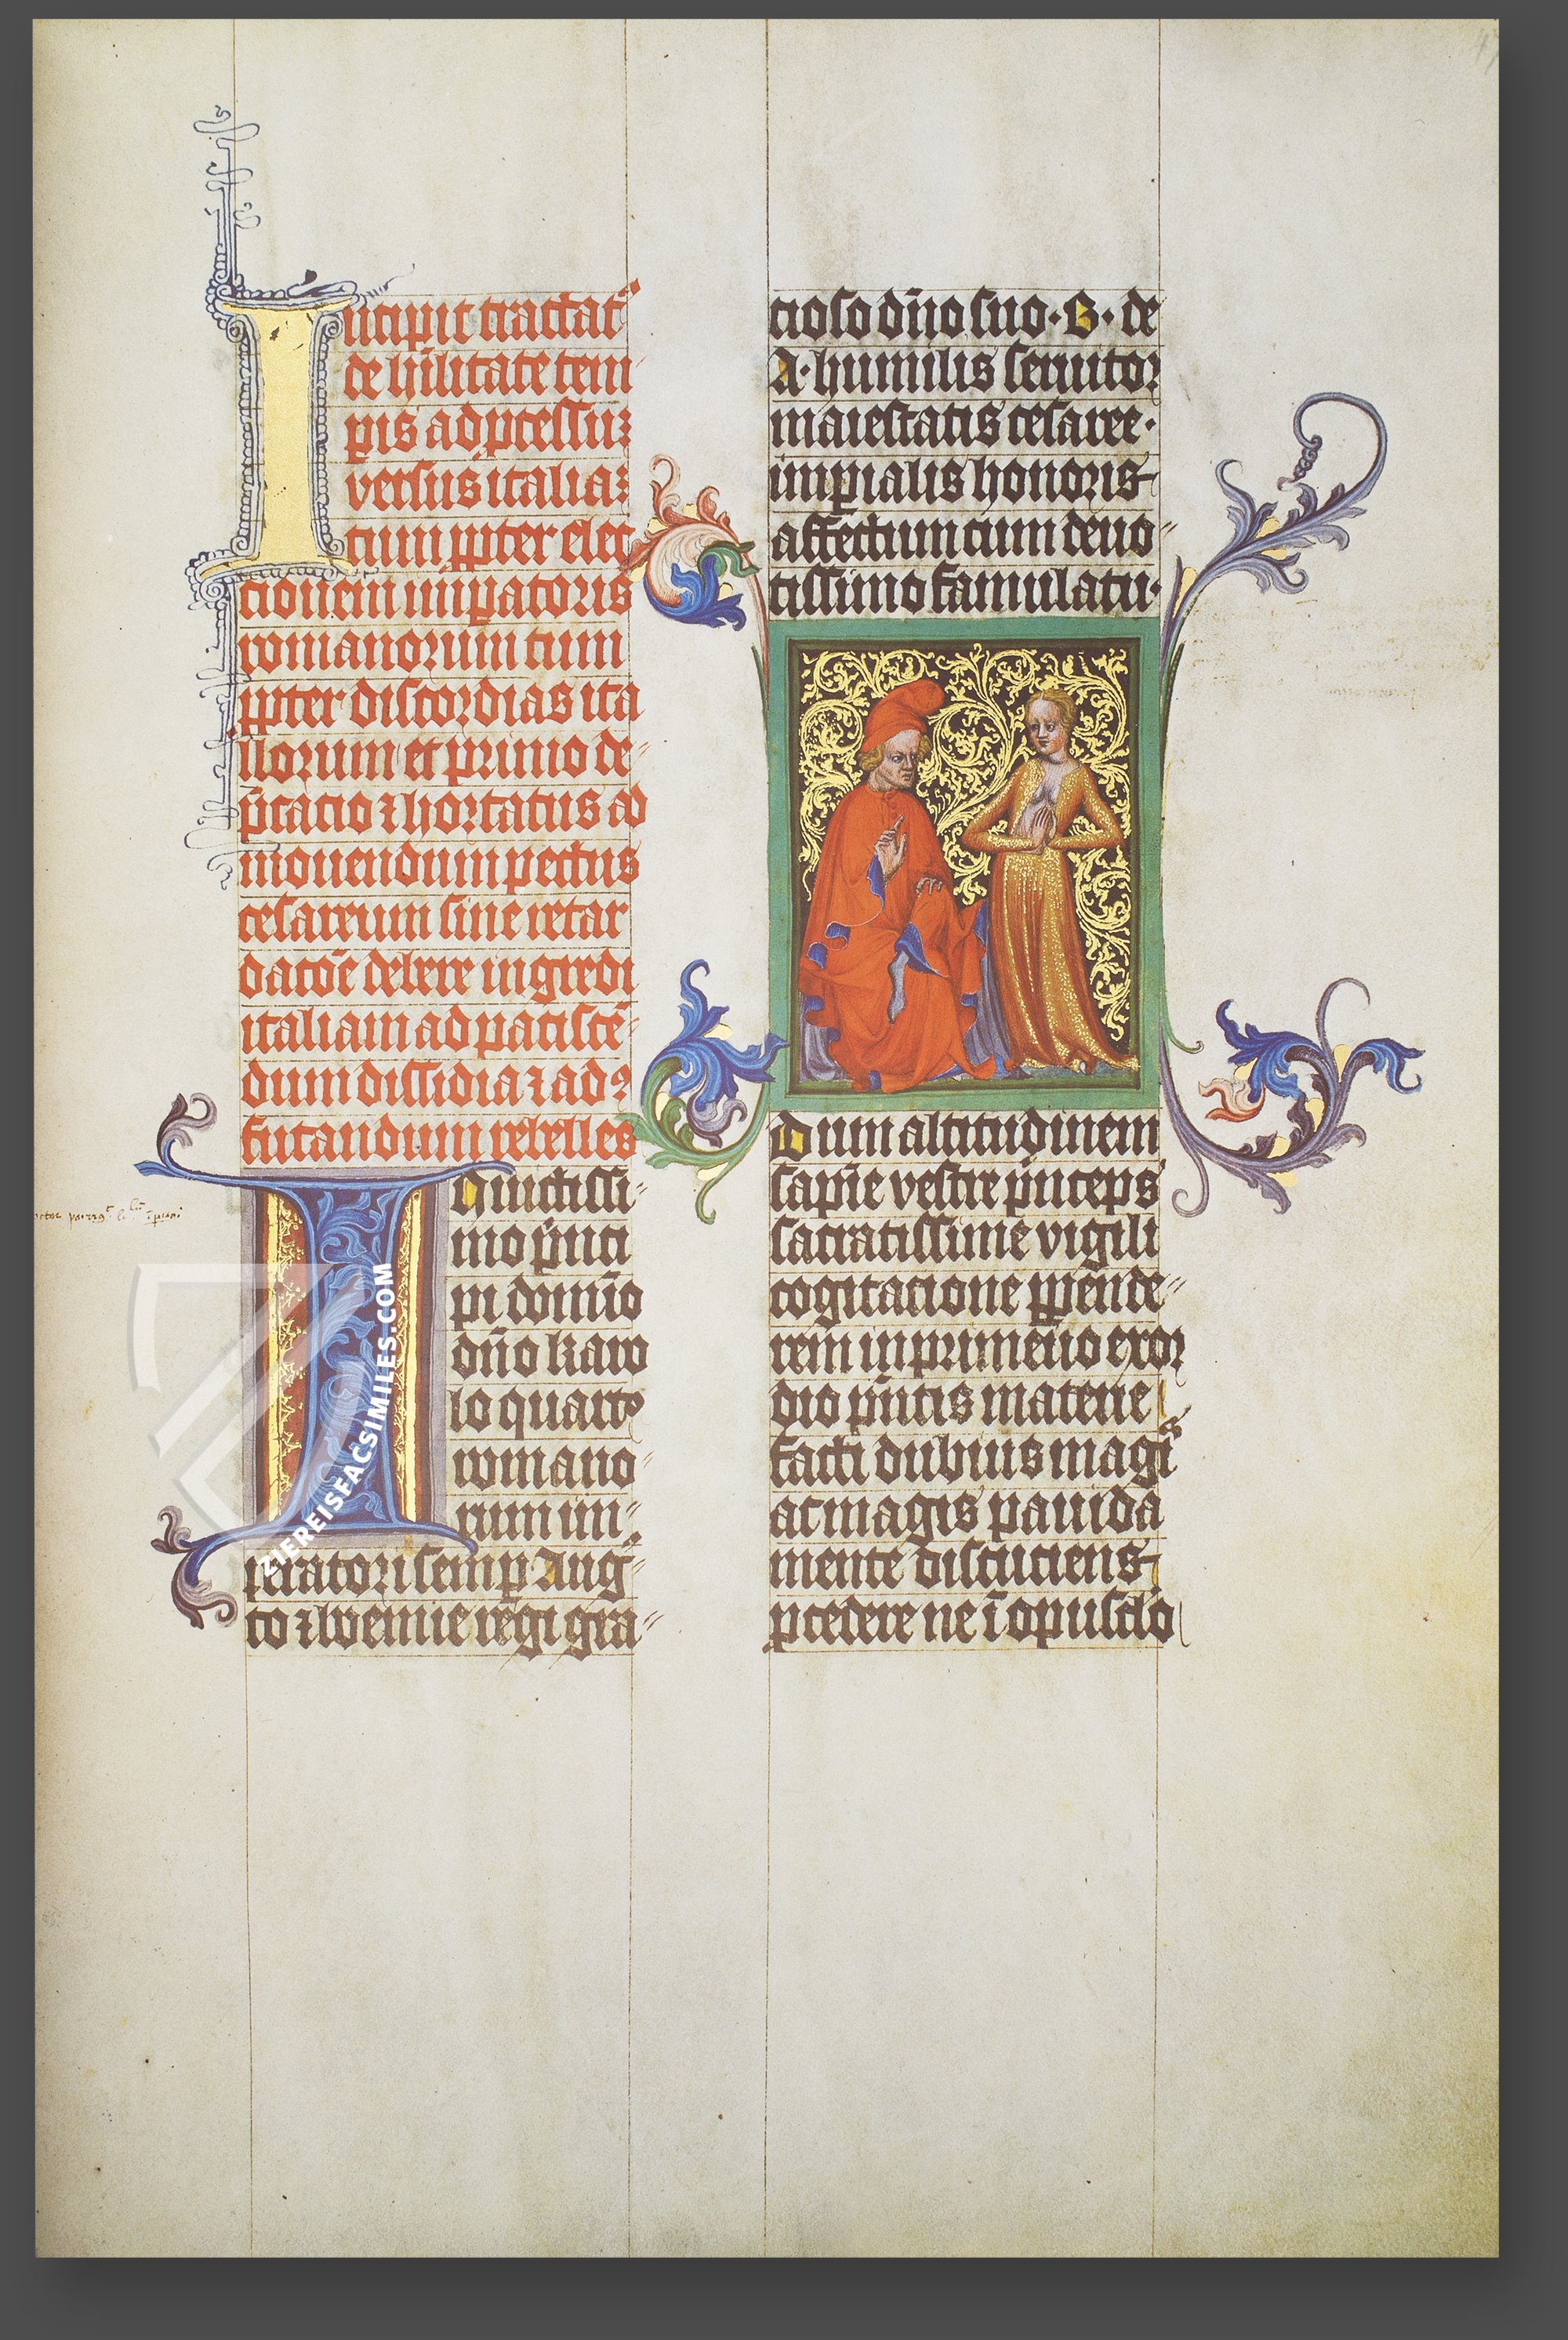 Incipit tractat᷒
de hu̅ilitate tem
pis ad ꝓcessuꝫ
versus italiaꝫ
tum ꝓpter elec
cionem imꝑatoris
romanorum tum
ꝓpter discordias ita
llorum et primo de-
p̅cacio ⁊ hortatus ad
mouendum pectus
cesareum sine retar
dacōe debere ingredi
italiam ad paciscē-
dum dissidia ⁊ ad ꝯ
futandum rebelles
Inuictissi-
mo p̅nci
pi domīo
dn̅o karo
lo quarto
romano-
rum im-
peratori semꝑ Aug᷒-
to ⁊ boemie regi gra-
cioso dn̅o suo · B · de
A · humilis seruitor
maiestatis cesaree ·
imꝑialis honoris
affectium cum deuo-
tissimo famulatu ·
Dum altitudinem
sapie̅ vestre p̅nceps
sacratissime vigili
cogitacione ꝓpende-
rem in primeuo exor
dio p̅ntis materie
facti dubius magi᷒
ac magis pauida
mente discuciens
ꝓcedere ne ī opusculo
ZIEREISFACSIMILES.COM